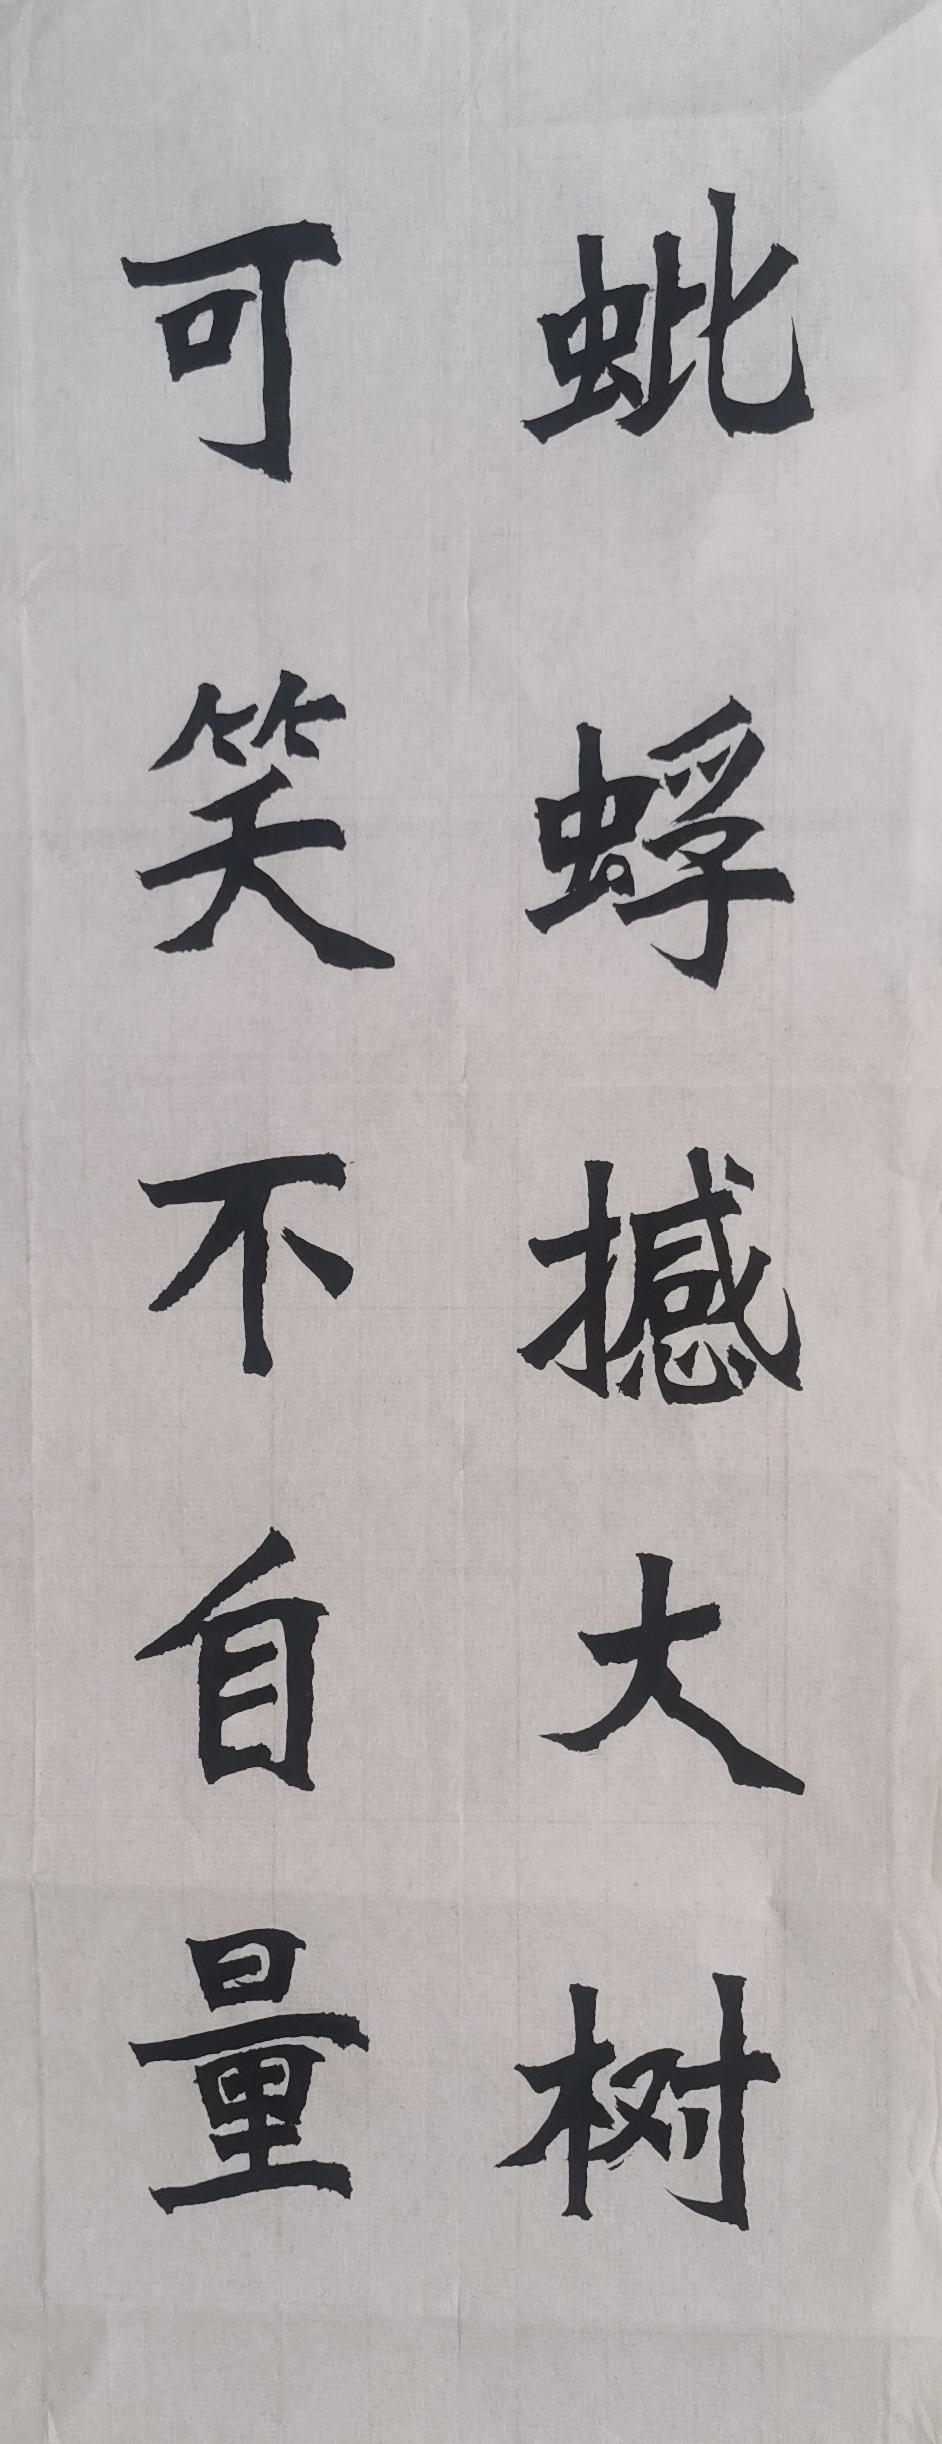 蚍蜉撼大树
可笑不自量